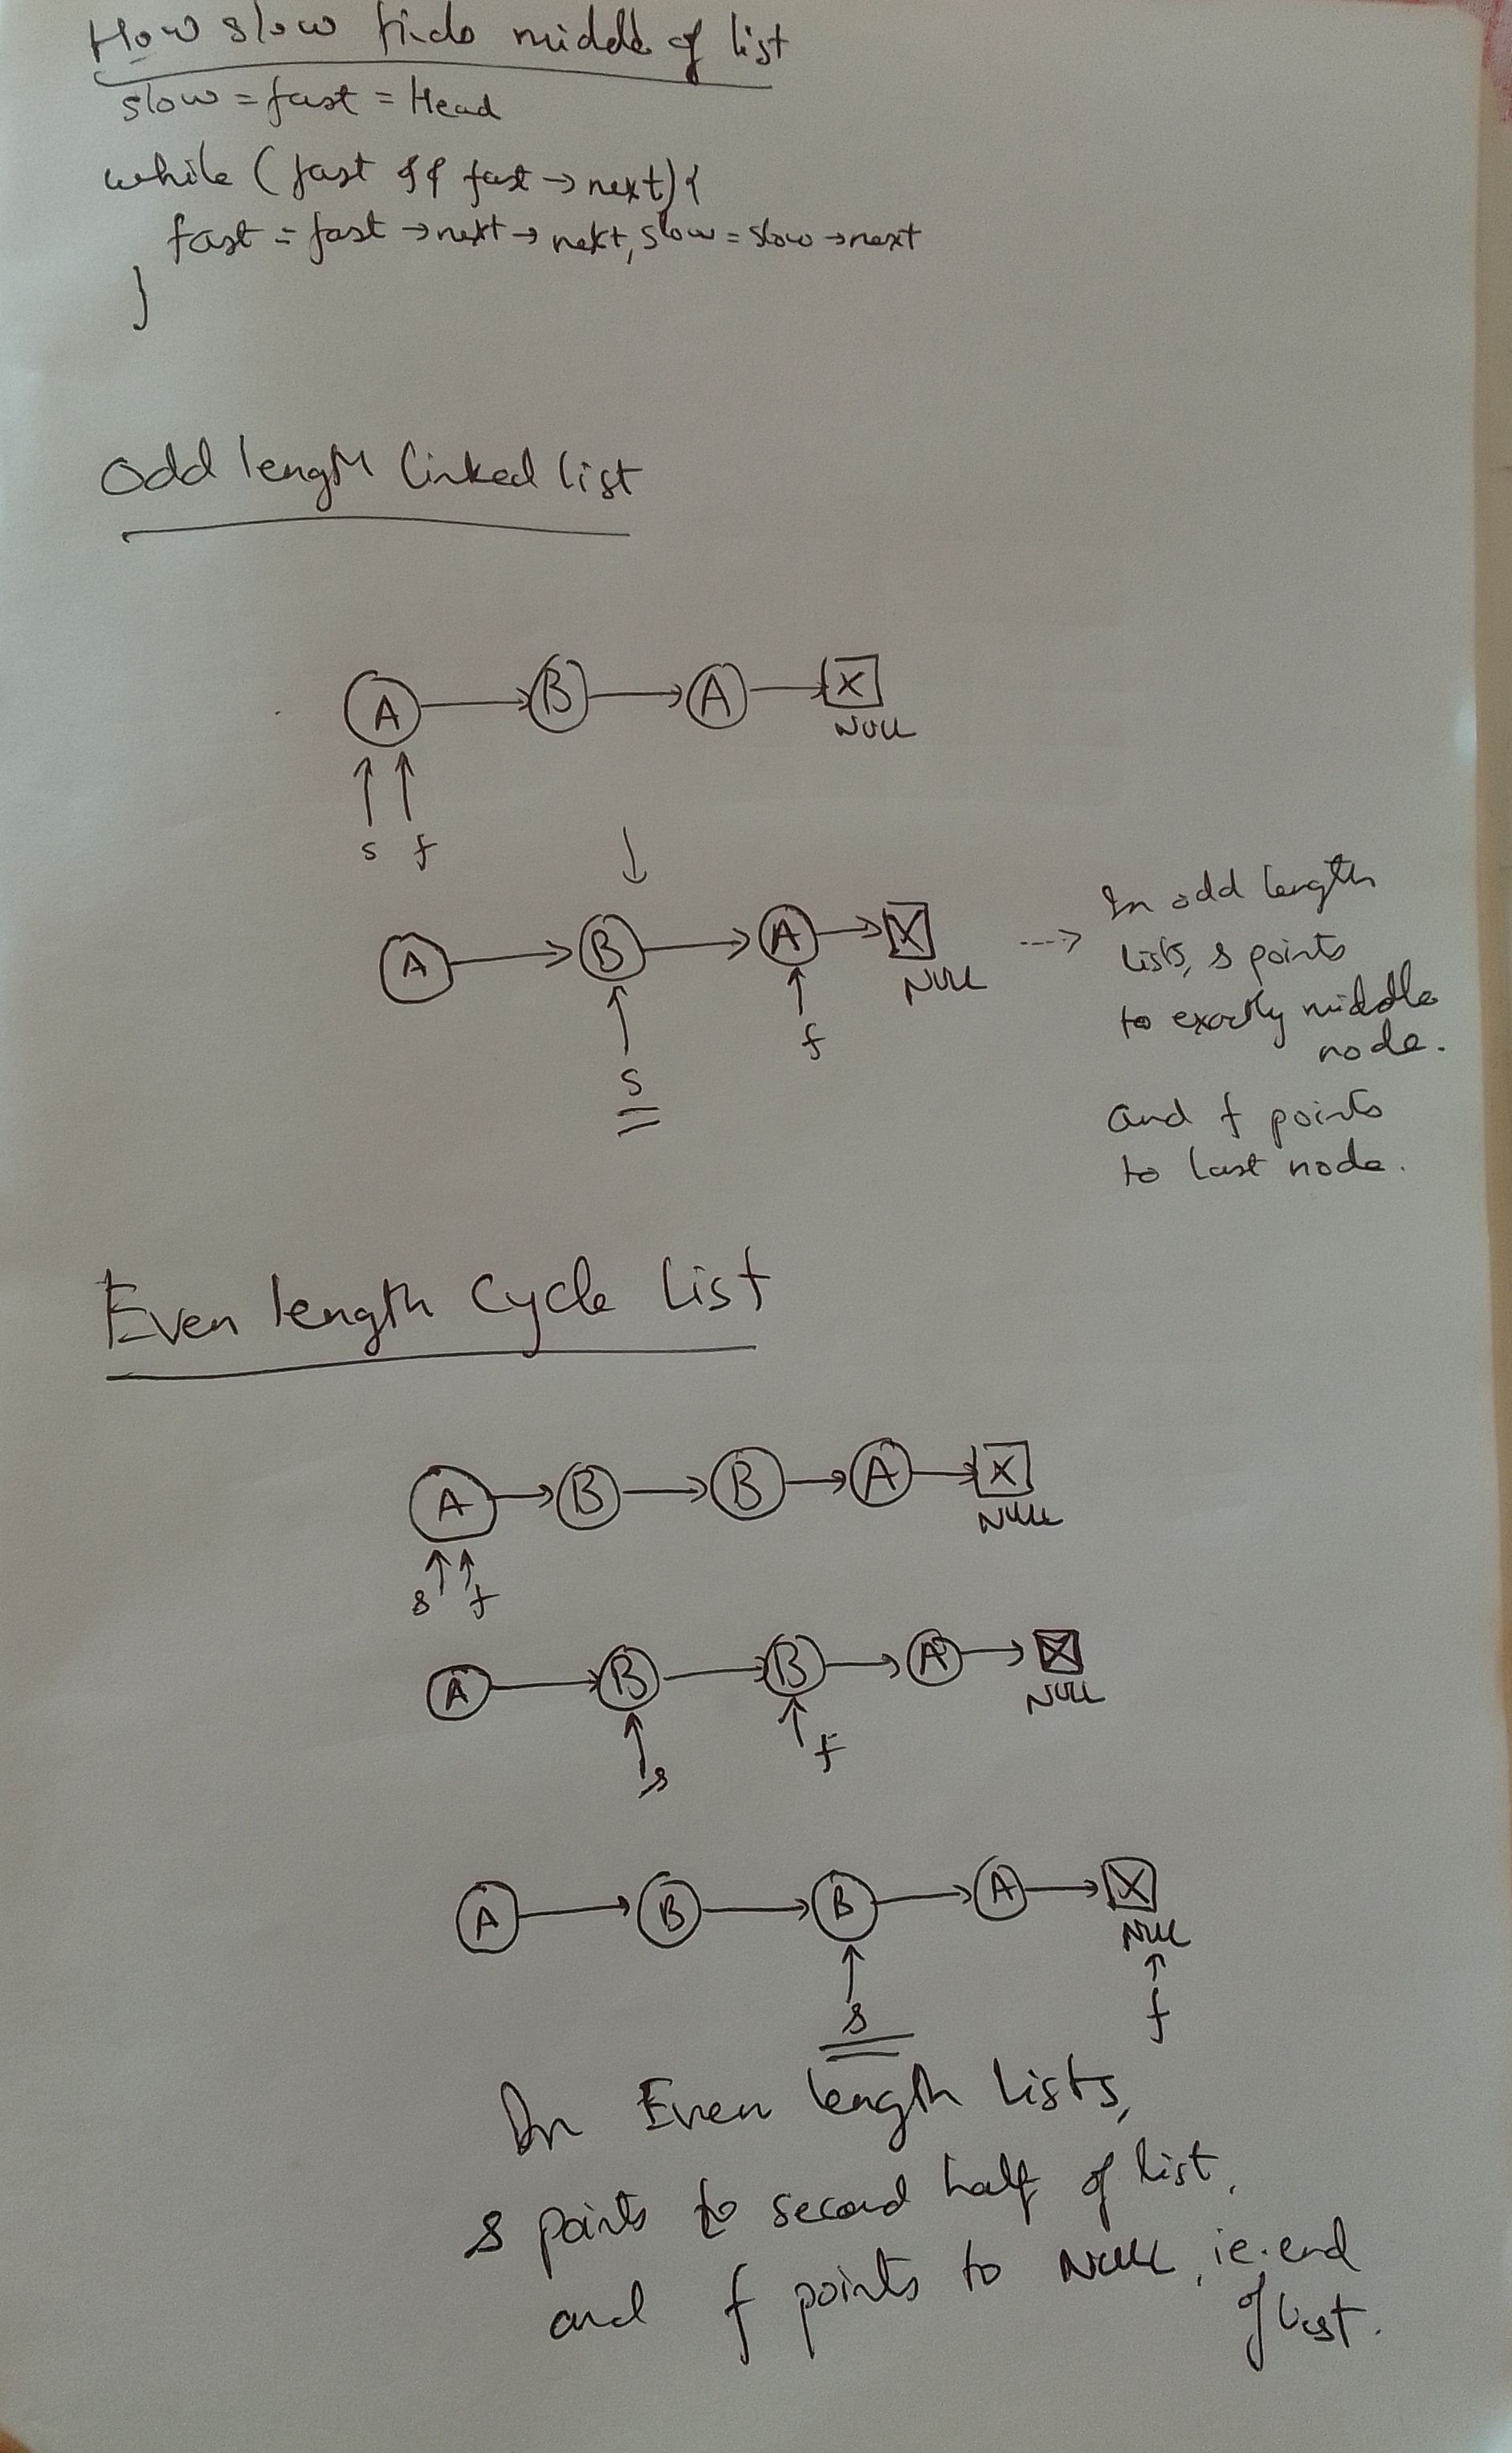 How slow finds middle of list
slow = fast = Head
while (fast && fast → next) {
fast = fast → next → next, slow = slow → next
}
Odd length linked list
A → B → A → X
NULL
s f
A → B → A → X
NULL
s
f
In odd length
lists, s points
to exactly middle
node.
and f points
to last node.
Even length Cycle List
A → B → B → A → X
NULL
s f
A → B → B → A → X
NULL
s
f
A → B → B → A → X
NULL
s
f
In Even length Lists,
s points to second half of list,
and f points to NULL, ie. end
of list.